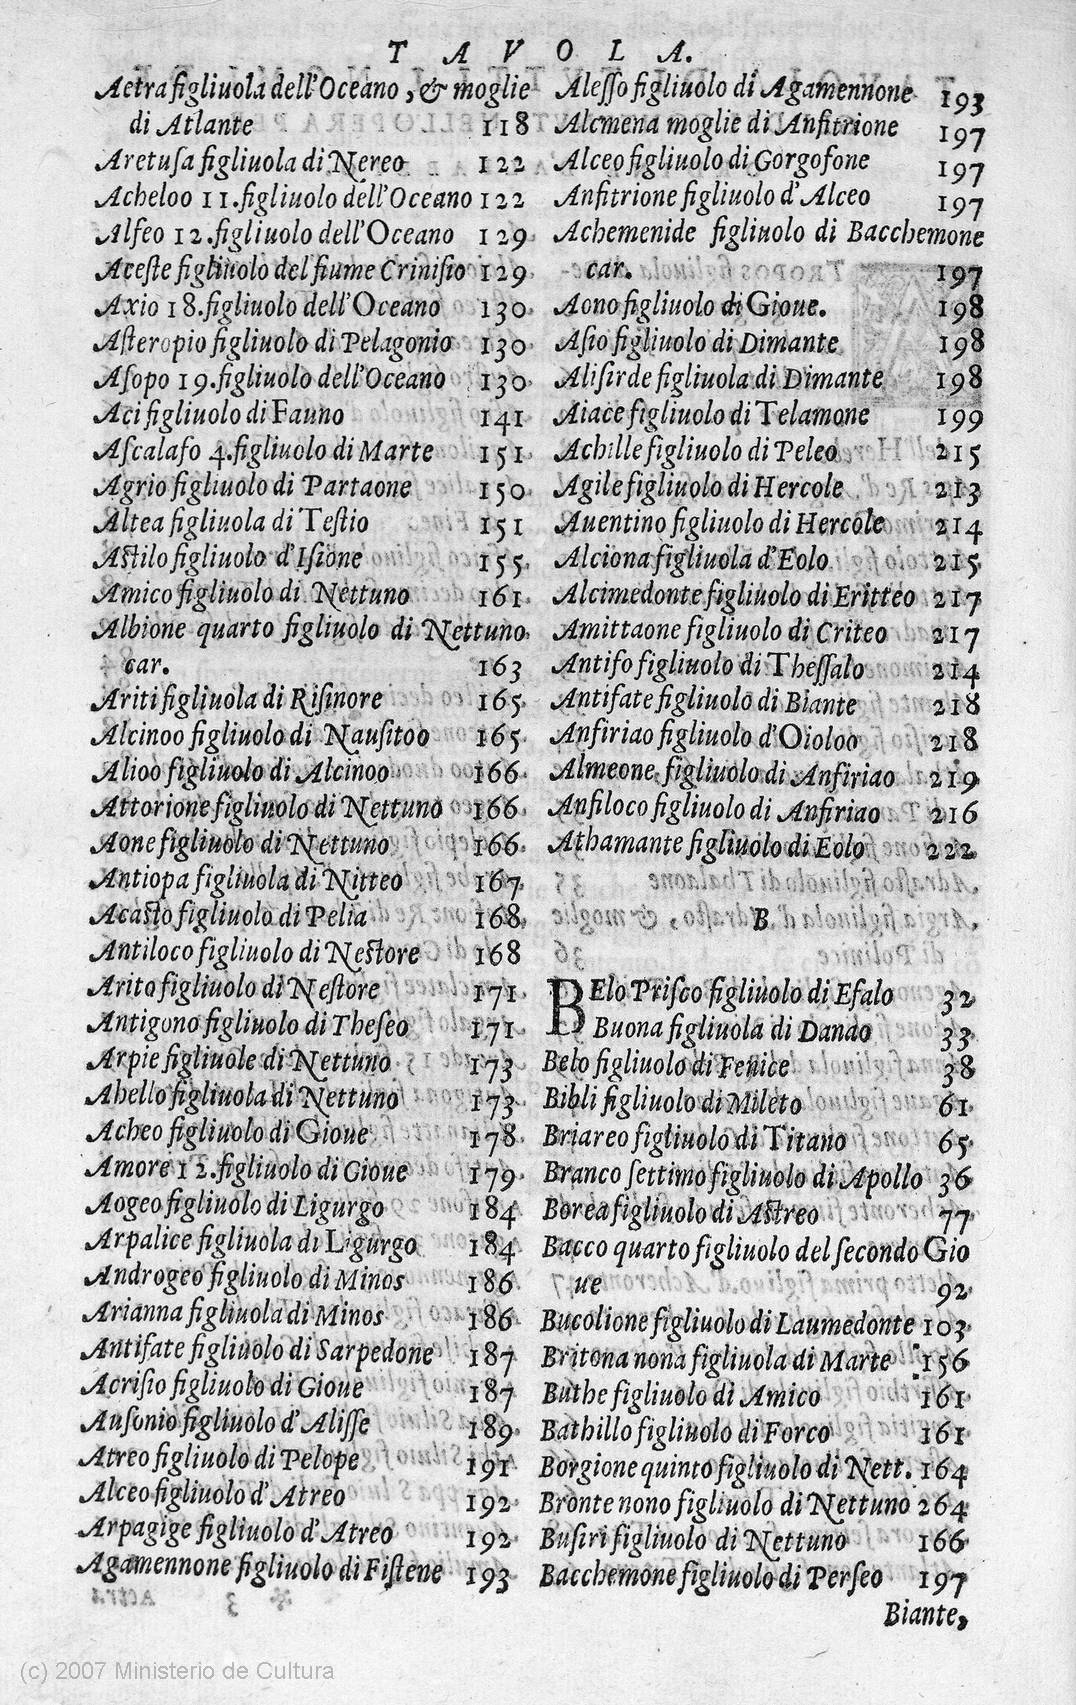 TAVOLA.
Aetra figliuola dell'Oceano, & moglie
di Atlante 118
Aretusa figliuola di Nereo 122
Acheloo 11. figliuolo dell'Oceano 122
Alfeo 12. figliuolo dell'Oceano 129
Aceste figliuolo del fiume Crinisio 129
Axio 18. figliuolo dell'Oceano 130
Asteropio figliuolo di Pelagonio 130
Asopo 19. figliuolo dell'Oceano 130
Aci figliuolo di Fauno 141
Ascalafo 4. figliuolo di Marte 151
Agrio figliuolo di Partaone 150
Altea figliuola di Testio 151
Astilo figliuolo d'Isione 155
Amico figliuolo di Nettuno 161
Albione quarto figliuolo di Nettuno
car. 163
Ariti figliuola di Risinore 165
Alcinoo figliuolo di Nausitoo 165
Alioo figliuolo di Alcinoo 166
Attorione figliuolo di Nettuno 166
Aone figliuolo di Nettuno 166
Antiopa figliuola di Nitteo 167
Acasto figliuolo di Pelia 168
Antiloco figliuolo di Nestore 168
Arito figliuolo di Nestore 171
Antigono figliuolo di Theseo 171
Arpie figliuole di Nettuno 173
Ahello figliuola di Nettuno 173
Acheo figliuolo di Gioue 178
Amore 12. figliuolo di Gioue 179
Aogeo figliuolo di Ligurgo 184
Arpalice figliuola di Ligurgo 184
Androgeo figliuolo di Minos 186
Arianna figliuola di Minos 186
Antifate figliuolo di Sarpedone 187
Acrisio figliuolo di Gioue 187
Ausonio figliuolo d'Alisse 189
Atreo figliuolo di Pelope 191
Alceo figliuolo d'Atreo 192
Arpagige figliuolo d'Atreo 192
Agamennone figliuolo di Fistene 193
Alesso figliuolo di Agamennone 193
Alcmena moglie di Anfitrione 197
Alceo figliuolo di Gorgofone 197
Anfitrione figliuolo d'Alceo 197
Achemenide figliuolo di Bacchemone
car. 197
Aono figliuolo di Gioue. 198
Asio figliuolo di Dimante 198
Alisirde figliuola di Dimante 198
Aiace figliuolo di Telamone 199
Achille figliuolo di Peleo 215
Agile figliuolo di Hercole 213
Auentino figliuolo di Hercole 214
Alciona figliuola d'Eolo 215
Alcimedonte figliuolo di Eritteo 217
Amittaone figliuolo di Criteo 217
Antifo figliuolo di Thessalo 214
Antifate figliuolo di Biante 218
Anfiriao figliuolo d'Oioloo 218
Almeone figliuolo di Anfiriao 219
Anfiloco figliuolo di Anfiriao 216
Athamante figliuolo di Eolo 222
B
BElo Prisco figliuolo di Efalo 32
Buona figliuola di Danao 33
Belo figliuolo di Fenice 38
Bibli figliuolo di Mileto 61
Briareo figliuolo di Titano 65
Branco settimo figliuolo di Apollo 36
Borea figliuolo di Astreo 77
Bacco quarto figliuolo del secondo Gio
ue 92
Bucolione figliuolo di Laumedonte 103
Britona nona figliuola di Marte 156
Buthe figliuolo di Amico 161
Bathillo figliuolo di Forco 161
Borgione quinto figliuolo di Nett. 164
Bronte nono figliuolo di Nettuno 264
Busiri figliuolo di Nettuno 166
Bacchemone figliuolo di Perseo 197
Biante,
(c) 2007 Ministerio de Cultura